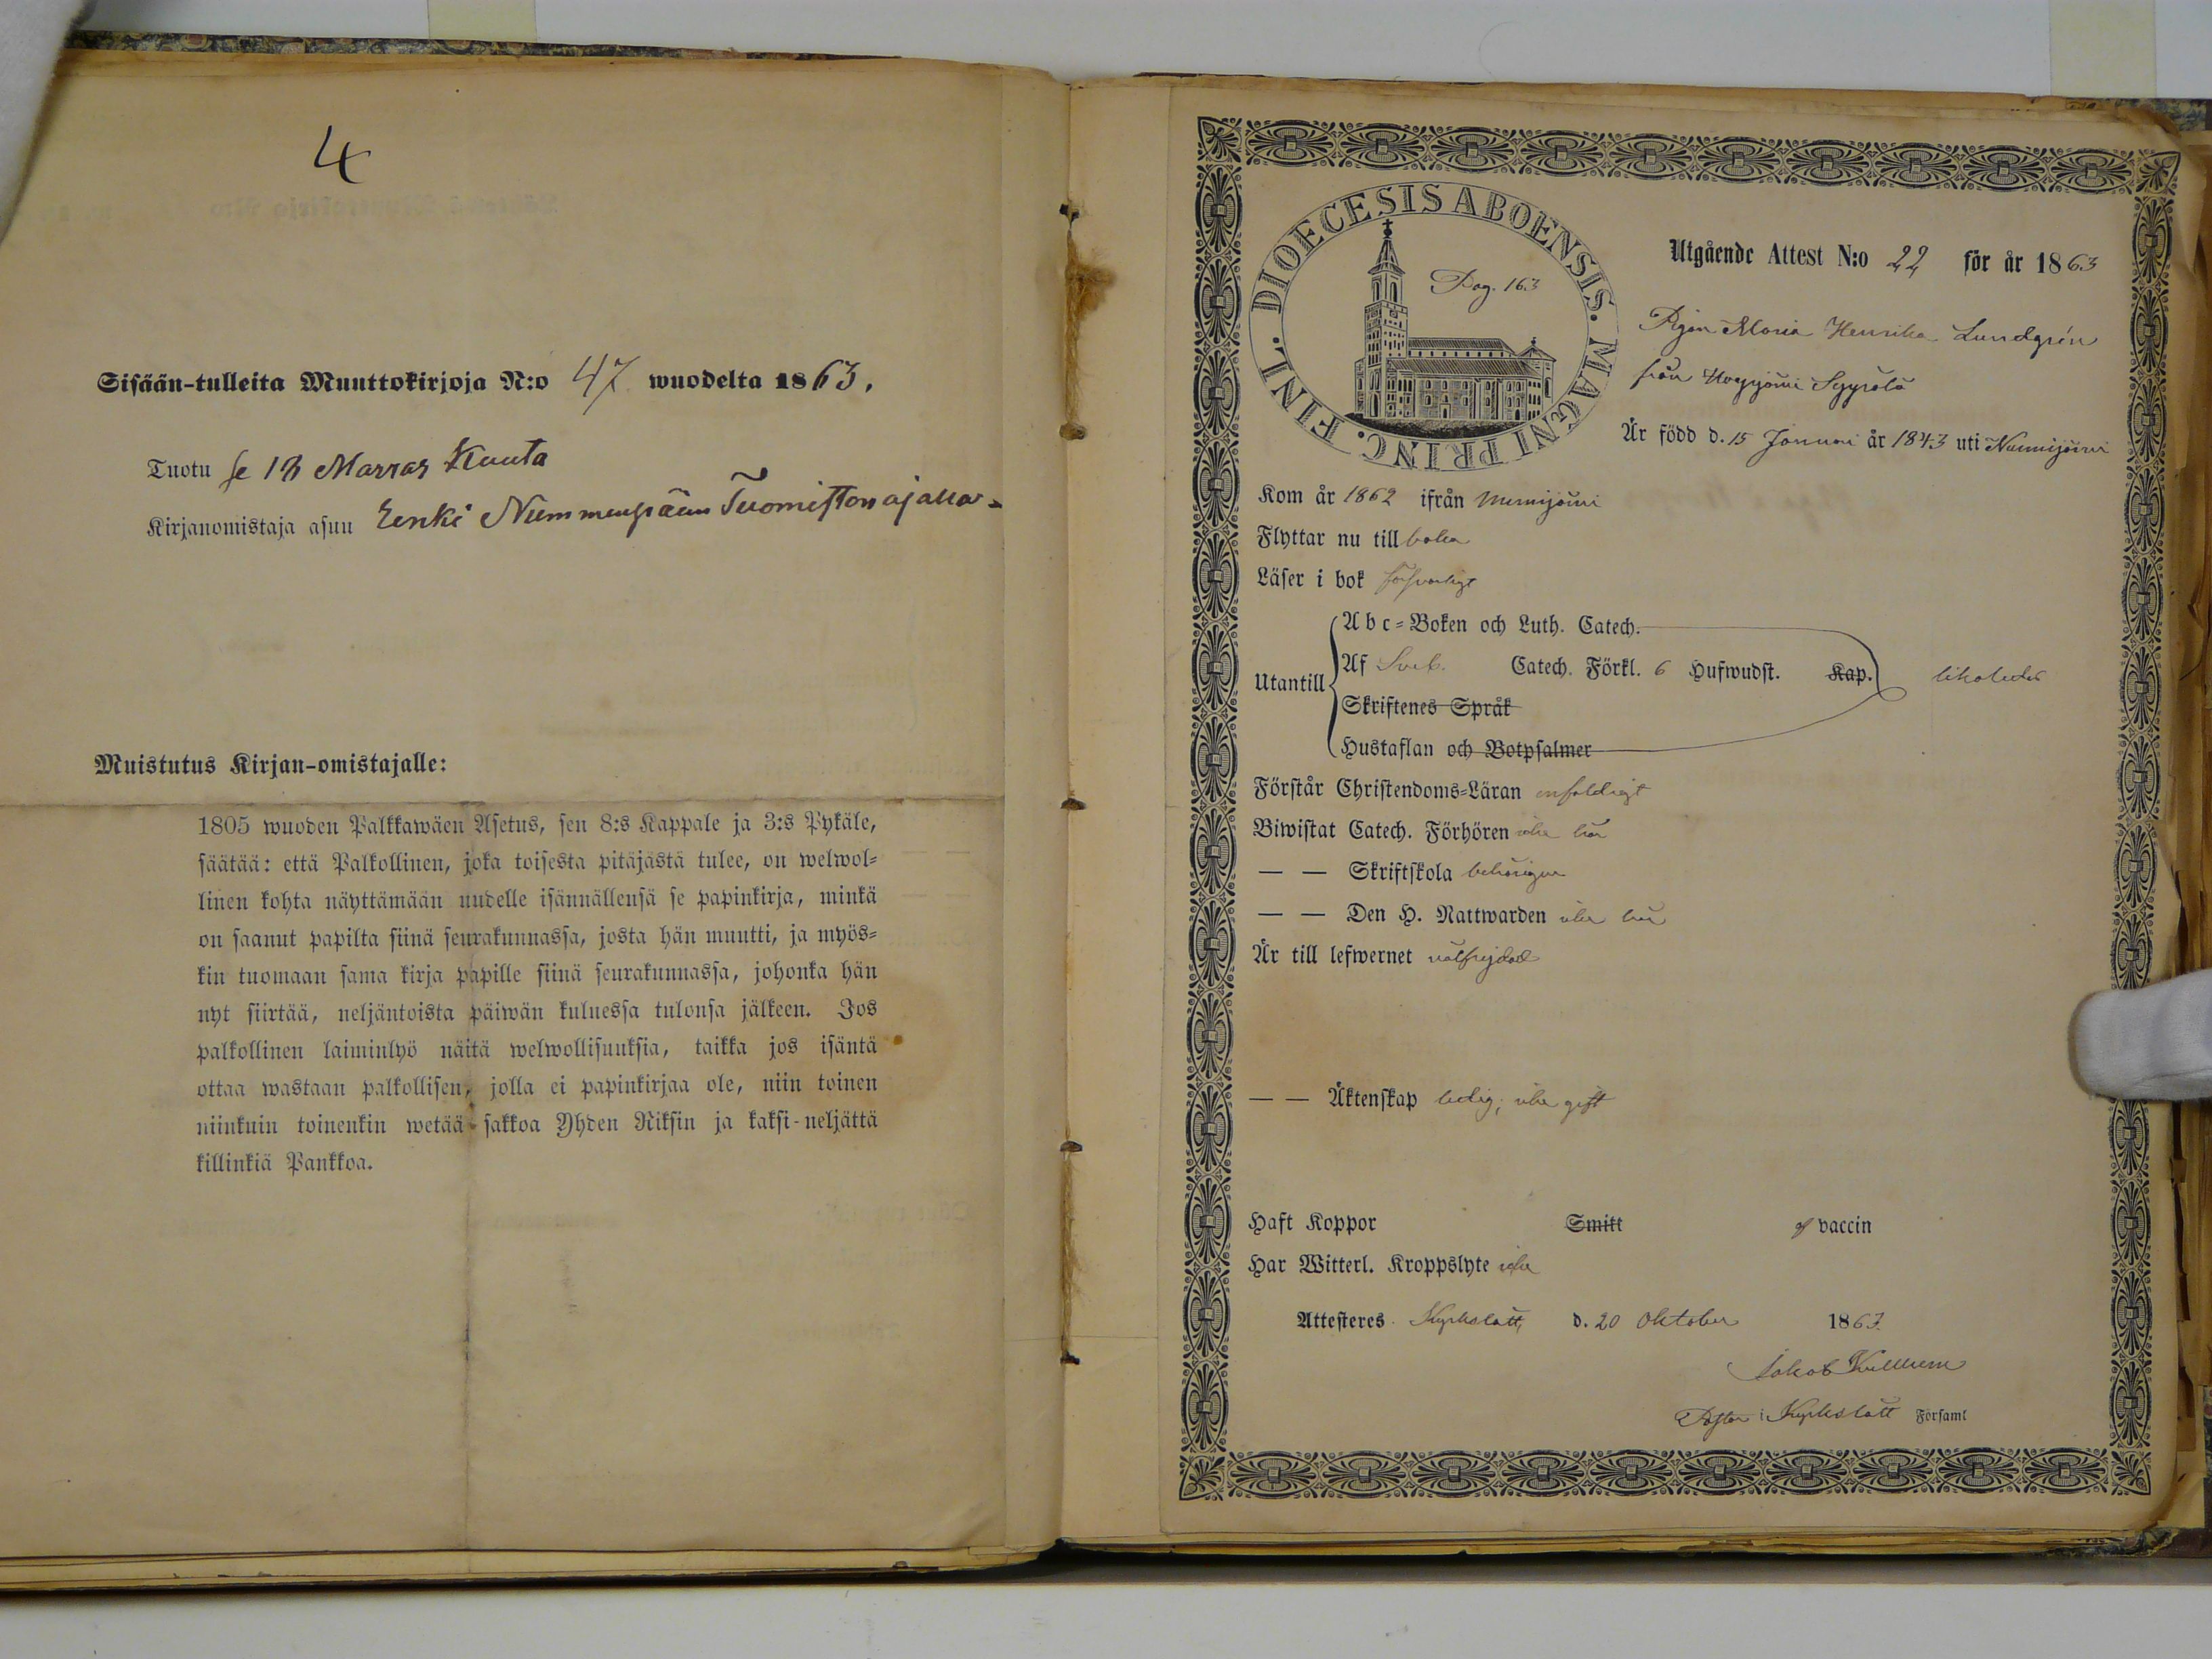 4
Sisään-tulleita Muuttokirjoja N:o 47 wuodelta 1863.
Tuotu se 18 Marras Kuuta
Kirjanomistaja asuu Eenki Nummenpään
Muistutus Kirjan-omistajalle:
1805 wuoden Palkkawäen Asetus, sen 8:s Kappale ja 3:s Pykäle,
säätää: että Palkollinen, joka toisesta pitäjästä tulee, on welwol-
linen kohta näyttämään uudelle isännällensä se papinkirja, minkä
on saanut papilta siinä seurakunnassa, josta hän muutti, ja myös-
kin tuomaan sama kirja papille siinä seurakunnassa, johonka hän
nyt siirtää, neljäntoista päiwän kuluessa tulonsa jälkeen. Jos
palkollinen laiminlyö näitä welwollisuuksia, taikka jos isäntä
ottaa wastaan palkollisen, jolla ei papinkirjaa ole, niin toinen
niinkuin toinenkin wetää sakkoa Yhden Riksin ja kaksi-neljättä
killinkiä Pankkoa.
DIOECESIS ABOENSIS. MAGNI PRINC. FINL.
Pag. 163
Utgående Attest N:o 22 för år 1863
Pigan Maria Henrika Lundgrén
från
Är född d. 15 Januari år 1843 uti Nummijärvi
Kom år 1862 ifrån Nummijärvi
Flyttar nu till
Läser i bok försvarligt
Utantill
Abc-Boken och Luth. Catech.
Af Sveb. Catech. Förkl. 6 Hufwudst. Kap. likaledes
Skriftenes Språk
Hustaflan och Botpsalmer
Förstår Christendoms-Läran enfaldigt
Biwistat Catech. Förhören icke här
— — Skriftskola behörigen
— — Den H. Nattwarden icke här
Är till lefwernet välfrejdad
— — Äktenskap ledig, icke gift
Haft Koppor Smitt af vaccin
Har Witterl. Kroppslyte icke
Attesteres Kyrkslätt, d. 20 Oktober 1863.
Jakob
Pastor i Kyrkslätt Församl